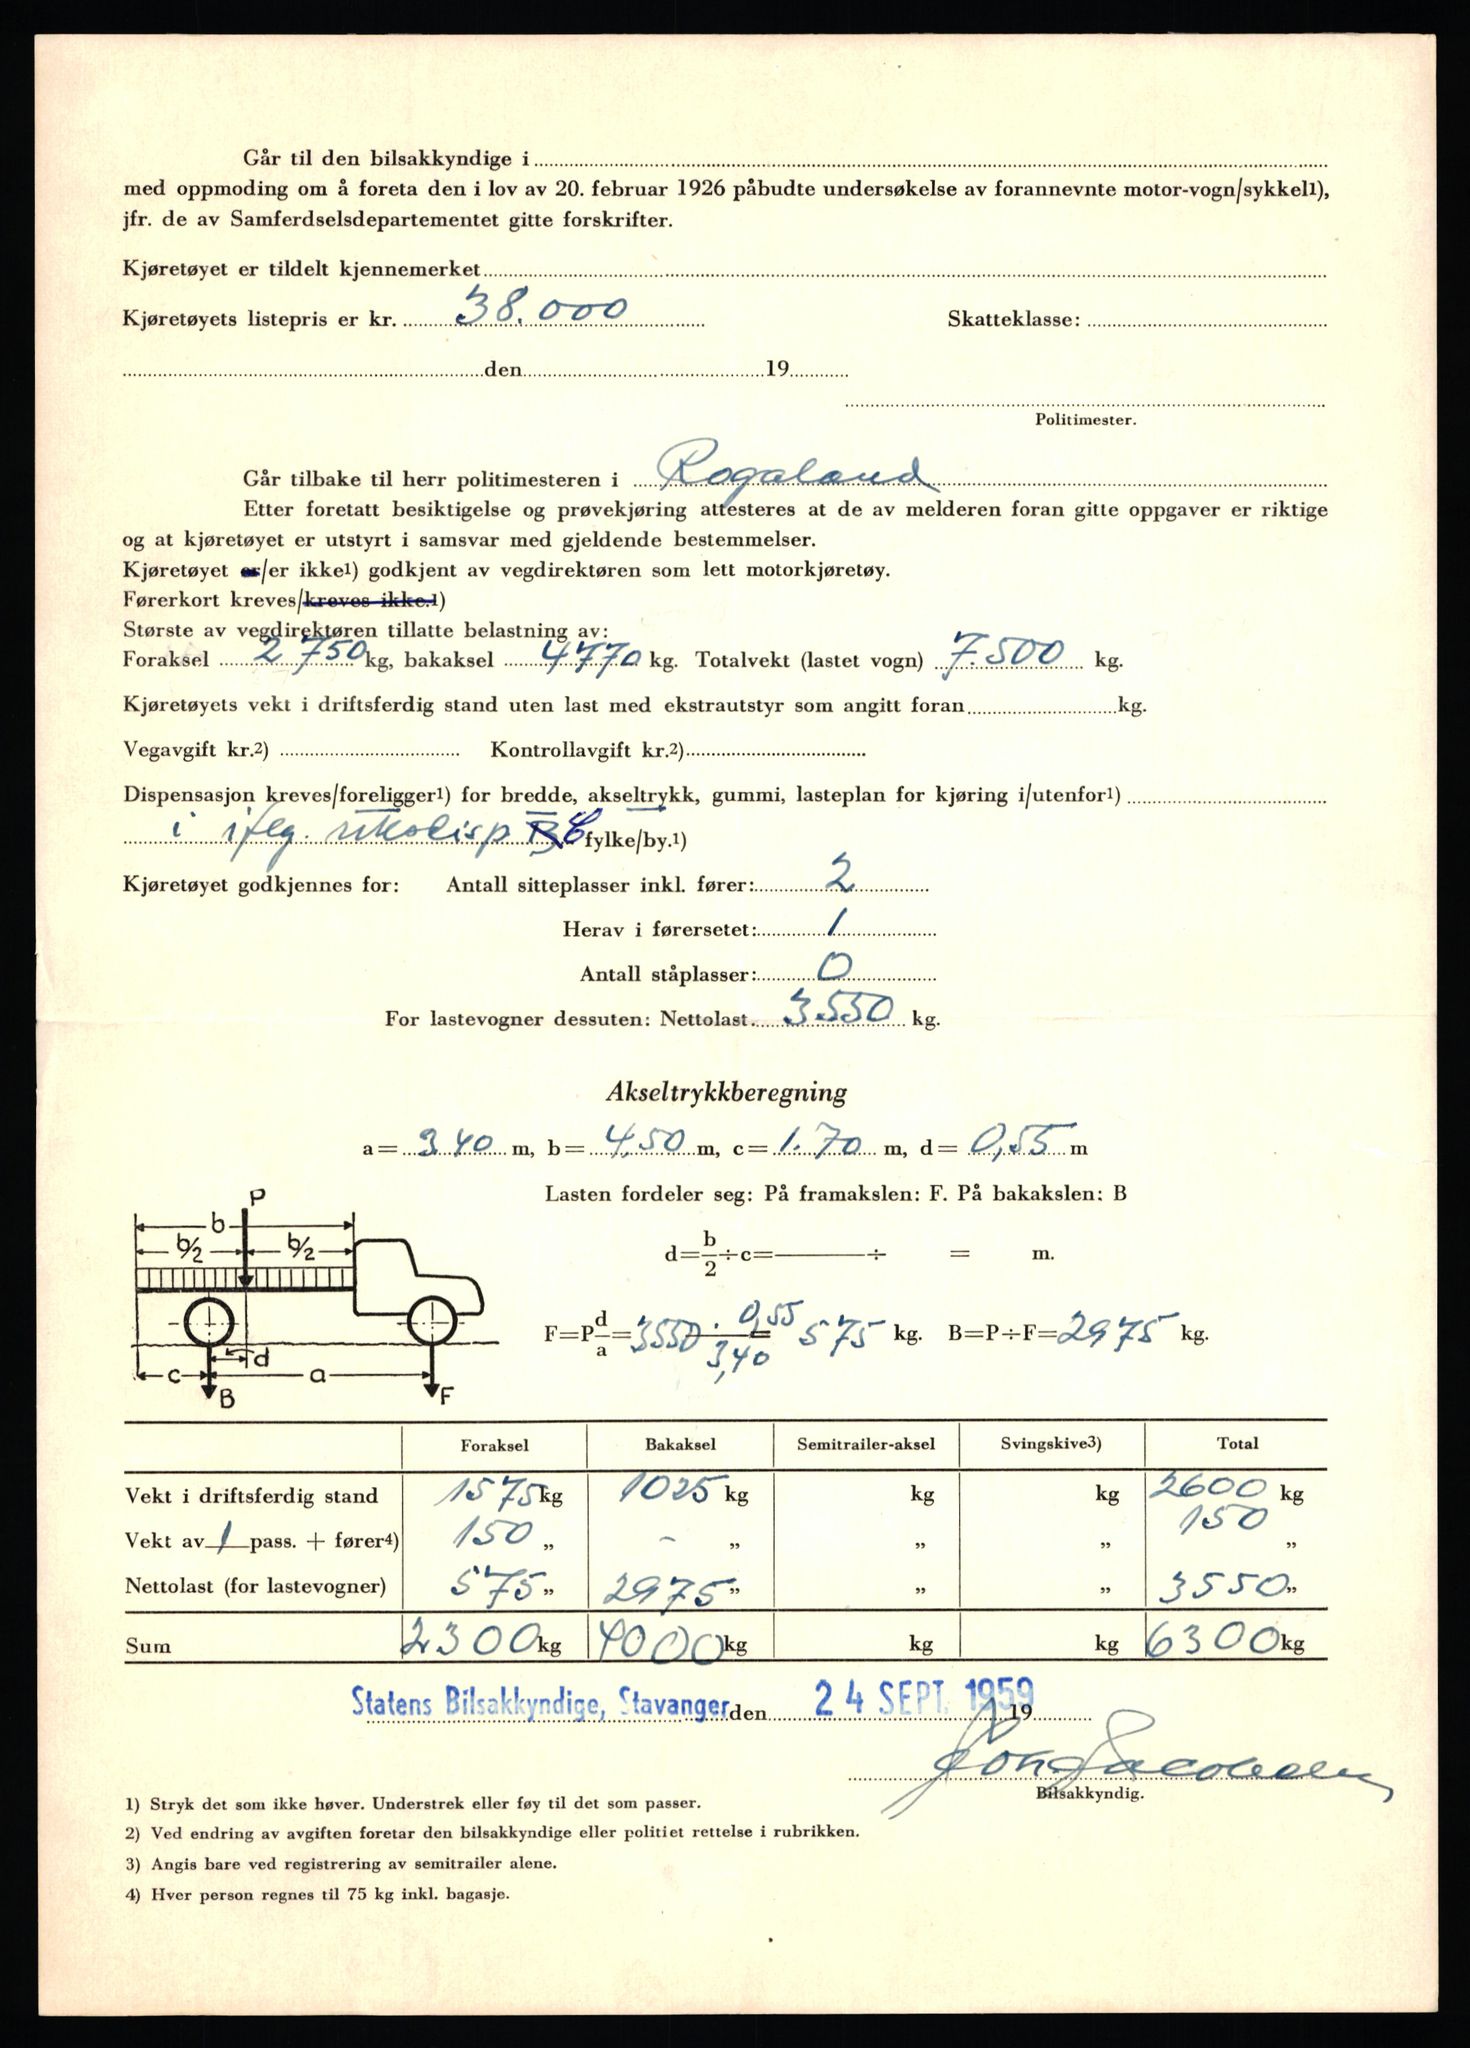 Går til den bilsakkyndige i
med oppmoding om å foreta den i lov av 20. februar 1926 påbudte undersøkelse av forannevnte motor-vogn/sykkel1),
jfr. de av Samferdselsdepartementet gitte forskrifter.
Kjøretøyet er tildelt kjennemerket
Kjøretøyets listepris er kr. 38.000 Skatteklasse:
den 19
Politimester.
Går tilbake til herr politimesteren i Rogaland
Etter foretatt besiktigelse og prøvekjøring attesteres at de av melderen foran gitte oppgaver er riktige
og at kjøretøyet er utstyrt i samsvar med gjeldende bestemmelser.
Kjøretøyet er/er ikke1) godkjent av vegdirektøren som lett motorkjøretøy.
Førerkort kreves/kreves ikke.1)
Største av vegdirektøren tillatte belastning av:
Foraksel 2750 kg, bakaksel 4770 kg. Totalvekt (lastet vogn) 7.500 kg.
Kjøretøyets vekt i driftsferdig stand uten last med ekstrautstyr som angitt foran kg.
Vegavgift kr.2) Kontrollavgift kr.2)
Dispensasjon kreves/foreligger1) for bredde, akseltrykk, gummi, lasteplan for kjøring i/utenfor1)
i iflg. fylke/by.1)
Kjøretøyet godkjennes for: Antall sitteplasser inkl. fører: 2
Herav i førersetet: 1
Antall ståplasser: 0
For lastevogner dessuten: Nettolast 3550 kg.
Akseltrykkberegning
a = 3.40 m, b = 4,50 m, c = 1.70 m, d = 0,55 m
Lasten fordeler seg: På framakslen: F. På bakakslen: B
d = b/2 ÷ c = ÷ = m.
F = P d/a = 3550 · 0,55 / 3,40 = 575 kg. B = P ÷ F = 2975 kg.
P
b
b/2 b/2
d
c a
B F
Foraksel Bakaksel Semitrailer-aksel Svingskive3) Total
Vekt i driftsferdig stand 1575 kg 1025 kg kg kg 2600 kg
Vekt av 1 pass. + fører4) 150 „ - „ „ „ 150 „
Nettolast (for lastevogner) 575 „ 2975 „ „ „ 3550 „
Sum 2300 kg 4000 kg kg kg 6300 kg
Statens Bilsakkyndige, Stavanger den 24 SEPT. 1959 19
Bilsakkyndig.
1) Stryk det som ikke høver. Understrek eller føy til det som passer.
2) Ved endring av avgiften foretar den bilsakkyndige eller politiet rettelse i rubrikken.
3) Angis bare ved registrering av semitrailer alene.
4) Hver person regnes til 75 kg inkl. bagasje.